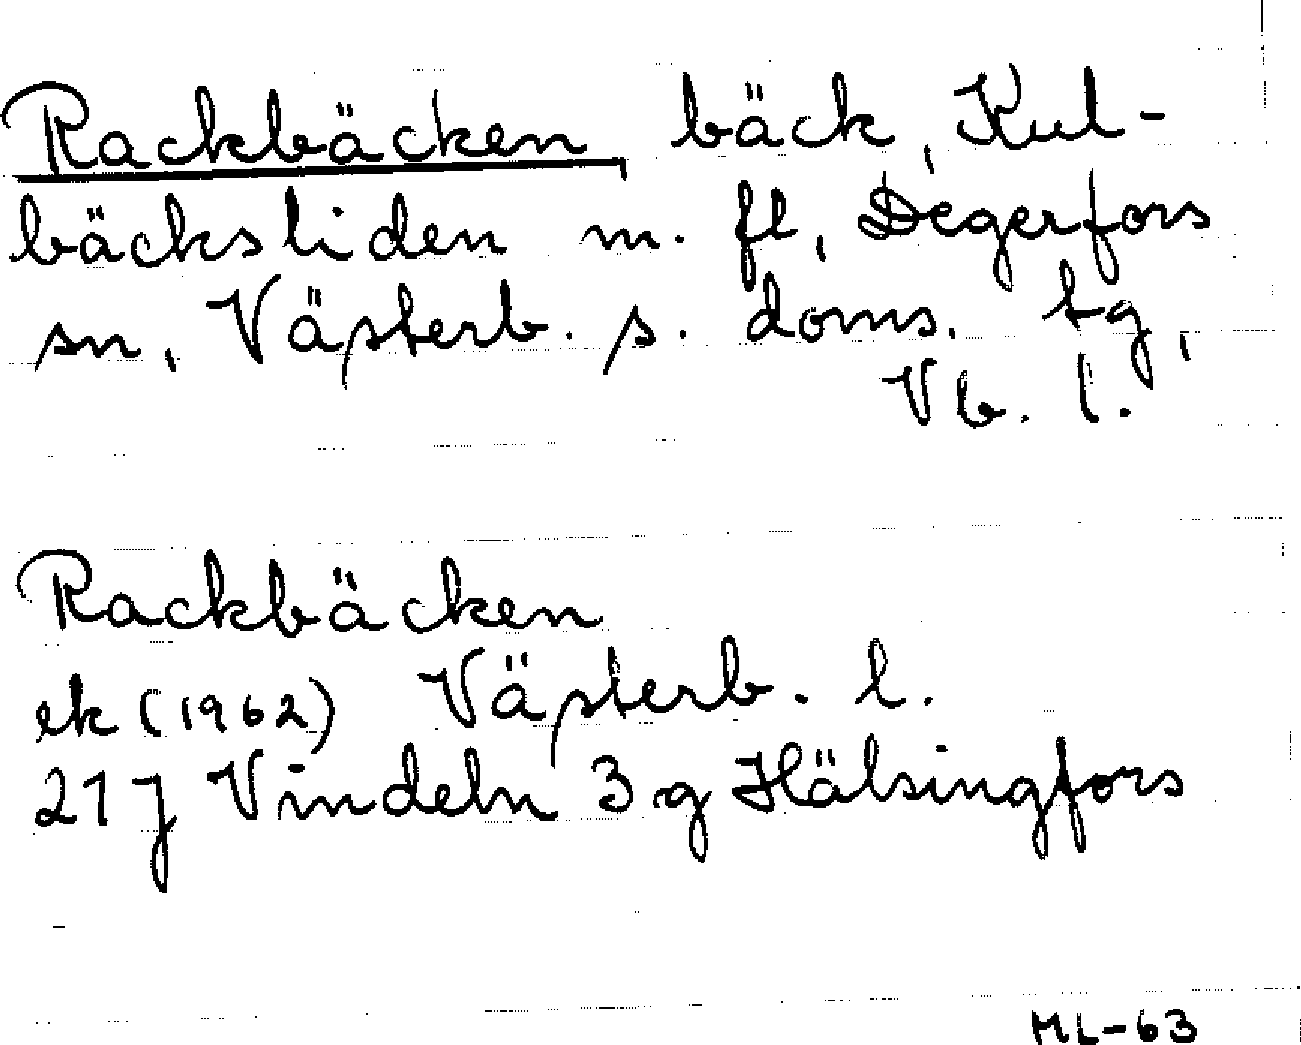 Rackbäcken, bäck, Kul-
bäcksliden m. fl, Degerfors
sn, Västerb. s. doms. tg,
Vb. l.
Rackbäcken
ek (1962) Västerb. l.
21 J Vindeln 3 g Hälsingfors
ML-63